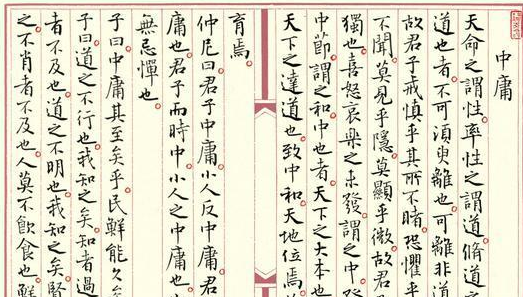 中庸
天命之謂性率性之謂道脩道
道也者不可須臾離也可離非道
故君子戒慎乎其所不睹恐懼乎
不聞莫見乎隱莫顯乎微故君
獨也喜怒哀樂之未發謂之中發
中節謂之和中也者天下之大本也
天下之達道也致中和天地位焉
育焉
仲尼曰君子中庸小人反中庸君
庸也君子而時中小人之中庸也
無忌憚也
子曰中庸其至矣乎民鮮能久矣
子曰道之不行也我知之矣知者過
者不及也道之不明也我知之矣賢
之不肖者不及也人莫不飲食也鮮